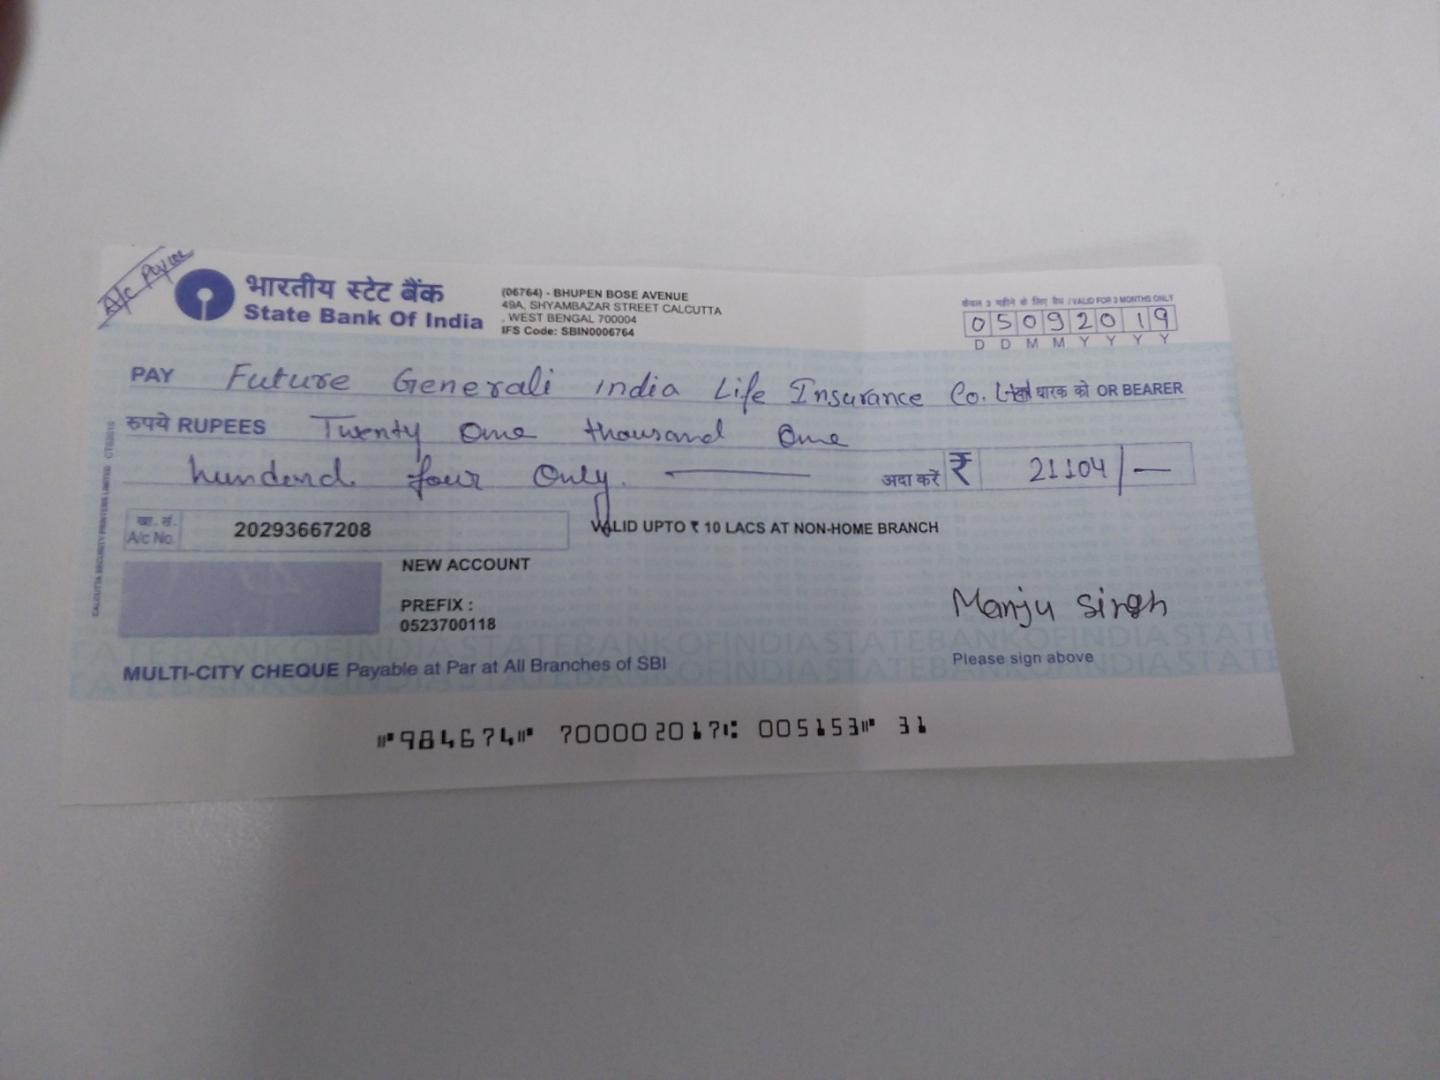 A/c Payee
भारतीय स्टेट बैंक
State Bank Of India
(06764) - BHUPEN BOSE AVENUE
49A, SHYAMBAZAR STREET CALCUTTA
, WEST BENGAL 700004
IFS Code: SBIN0006764
केवल 3 महीने के लिए वैध / VALID FOR 3 MONTHS ONLY
05092019
D D M M Y Y Y Y
PAY Future Generali india Life Insurance Co. Ltd धारक को OR BEARER
रुपये RUPEES Twenty One thousand One
hunderd four Only. अदा करें ₹ 21104/-
खा. सं.
A/c No. 20293667208
VALID UPTO ₹ 10 LACS AT NON-HOME BRANCH
NEW ACCOUNT
PREFIX :
0523700118
Manju Singh
Please sign above
MULTI-CITY CHEQUE Payable at Par at All Branches of SBI
⑈984674⑈ 700002017⑆ 005153⑈ 31